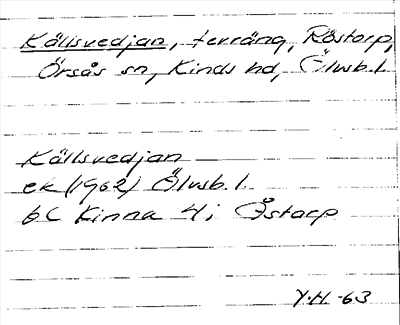 Källsvedjan, terräng, Röstorp,
Örsås sn, Kinds hd, Älvsb. l.
Källsvedjan
ek (1962) Älvsb. l.
6C Kinna 4i Östorp
Y.H. -63